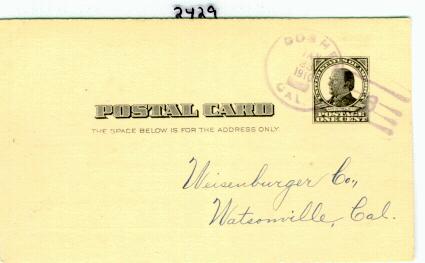 2429
GOSHEN
JAN
1910
CAL
POSTAL CARD
POSTAGE
ONE CENT
THE SPACE BELOW IS FOR THE ADDRESS ONLY
Weisenburger Co.,
Watsonville, Cal.